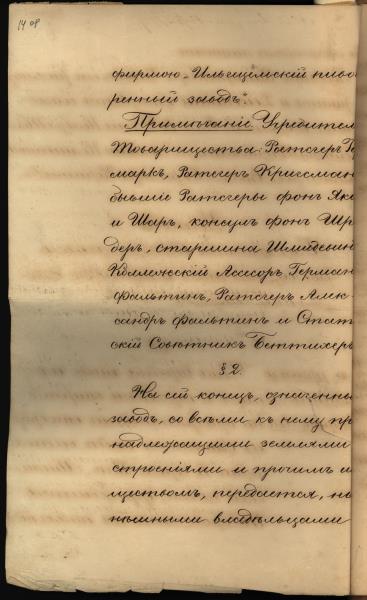 14 об
фирмою „Ильгецемскій пиво
ренный заводъ".
Примѣчаніе Учредител
Товарищества: Ратсгеръ Ге
маркъ, Ратсгеръ Кригсман
бывшіе Ратсгеры фонъ Яко
и Шаръ, консулъ фонъ Шр
деръ, старшина
Коллежскій Асесоръ Герман
Фальтинъ, Ратсгеръ Алек-
сандръ Фальтинъ и Стат
скій Совѣтникъ Беттихеръ
§ 2.
На сей конецъ, означенны
заводъ, со всѣми къ нему пр
надлежащими землями
строеніями и прочимъ и
ществомъ, передается, ны
нѣшными владѣльцами